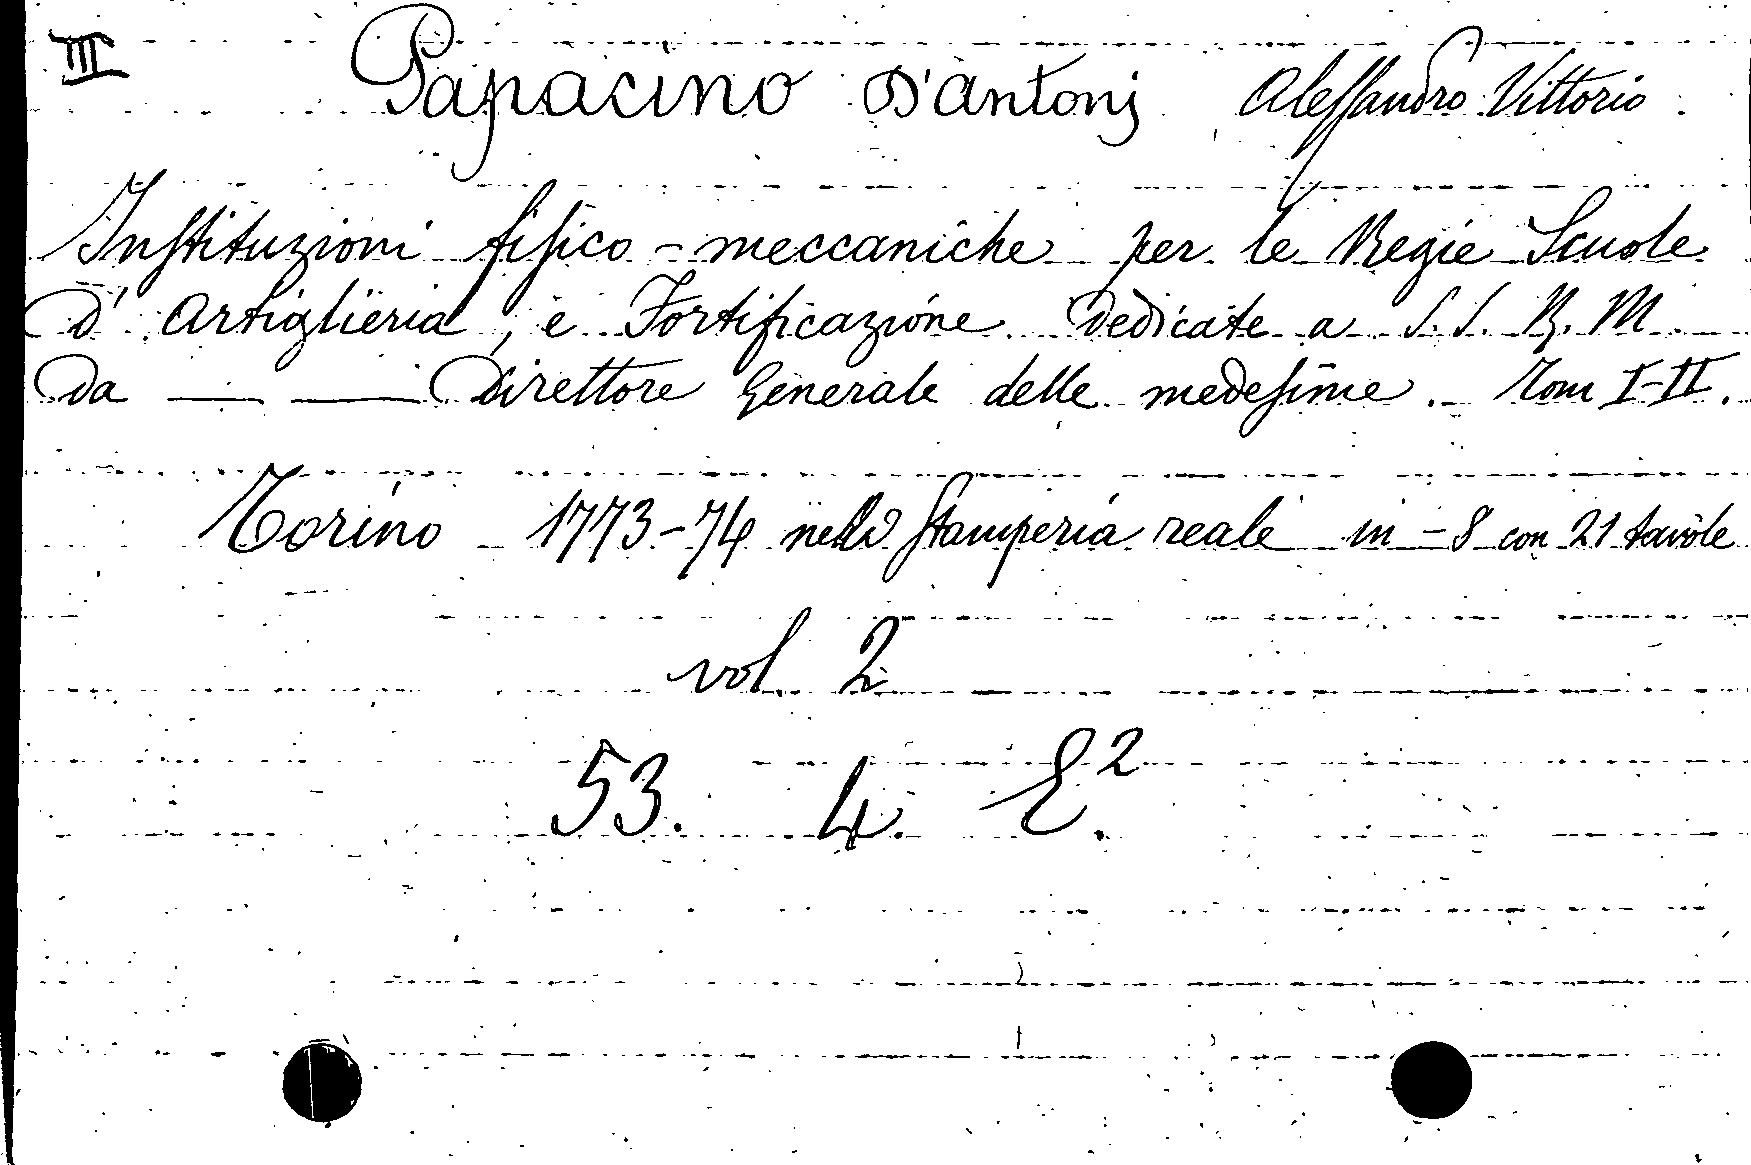 III
Papacino D'Antonj Alessandro Vittorio.
Instituzioni fisico-meccaniche per le Regie Scuole
d'Artiglieria, e Fortificazione dedicate a S. S. R. M.
da ___ ___ Direttore Generale delle medesime. Tom I-II.
Torino 1773-74 nella Stamperia reale in-8 con 21 tavole
vol. 2
53. 4. E².